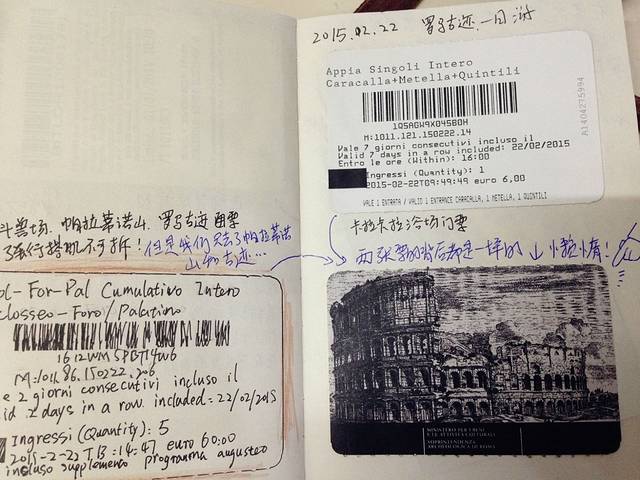 斗兽场、帕拉蒂诺山、罗马古迹
不可拆！但是我们只去了帕拉蒂诺
山和古迹...
ol-For-Pal Cumulativo Intero
closseo-Foro/Palatino
1612WM
M:1011.86.150222.206
e 2 giorni consecutivi incluso il
id 2 days in a row included: 22/02/2015
Ingressi (Quantity): 5
2015-2-22 euro 60.00
incluso supplemento programma augusteo
2015.02.22 罗马古迹一日游
Appia Singoli Intero
Caracalla+Metella+Quintili
1Q5AGW9X045BOH
M:1011.121.150222.14
Vale 7 giorni consecutivi incluso il
Valid 7 days in a row included: 22/02/2015
Entro le ore (Within): 16:00
Ingressi (Quantity): 1
2015-02-22T09:49:49 euro 6,00
VALE 1 ENTRATA / VALID 1 ENTRANCE CARACALLA, 1 METELLA, 1 QUINTILI
A1404275994
卡拉卡拉浴场门票
两张票的背后都是一样的
MINISTERO PER I BENI
E LE ATTIVITÀ CULTURALI
SOPRINTENDENZA
ARCHEOLOGICA DI ROMA